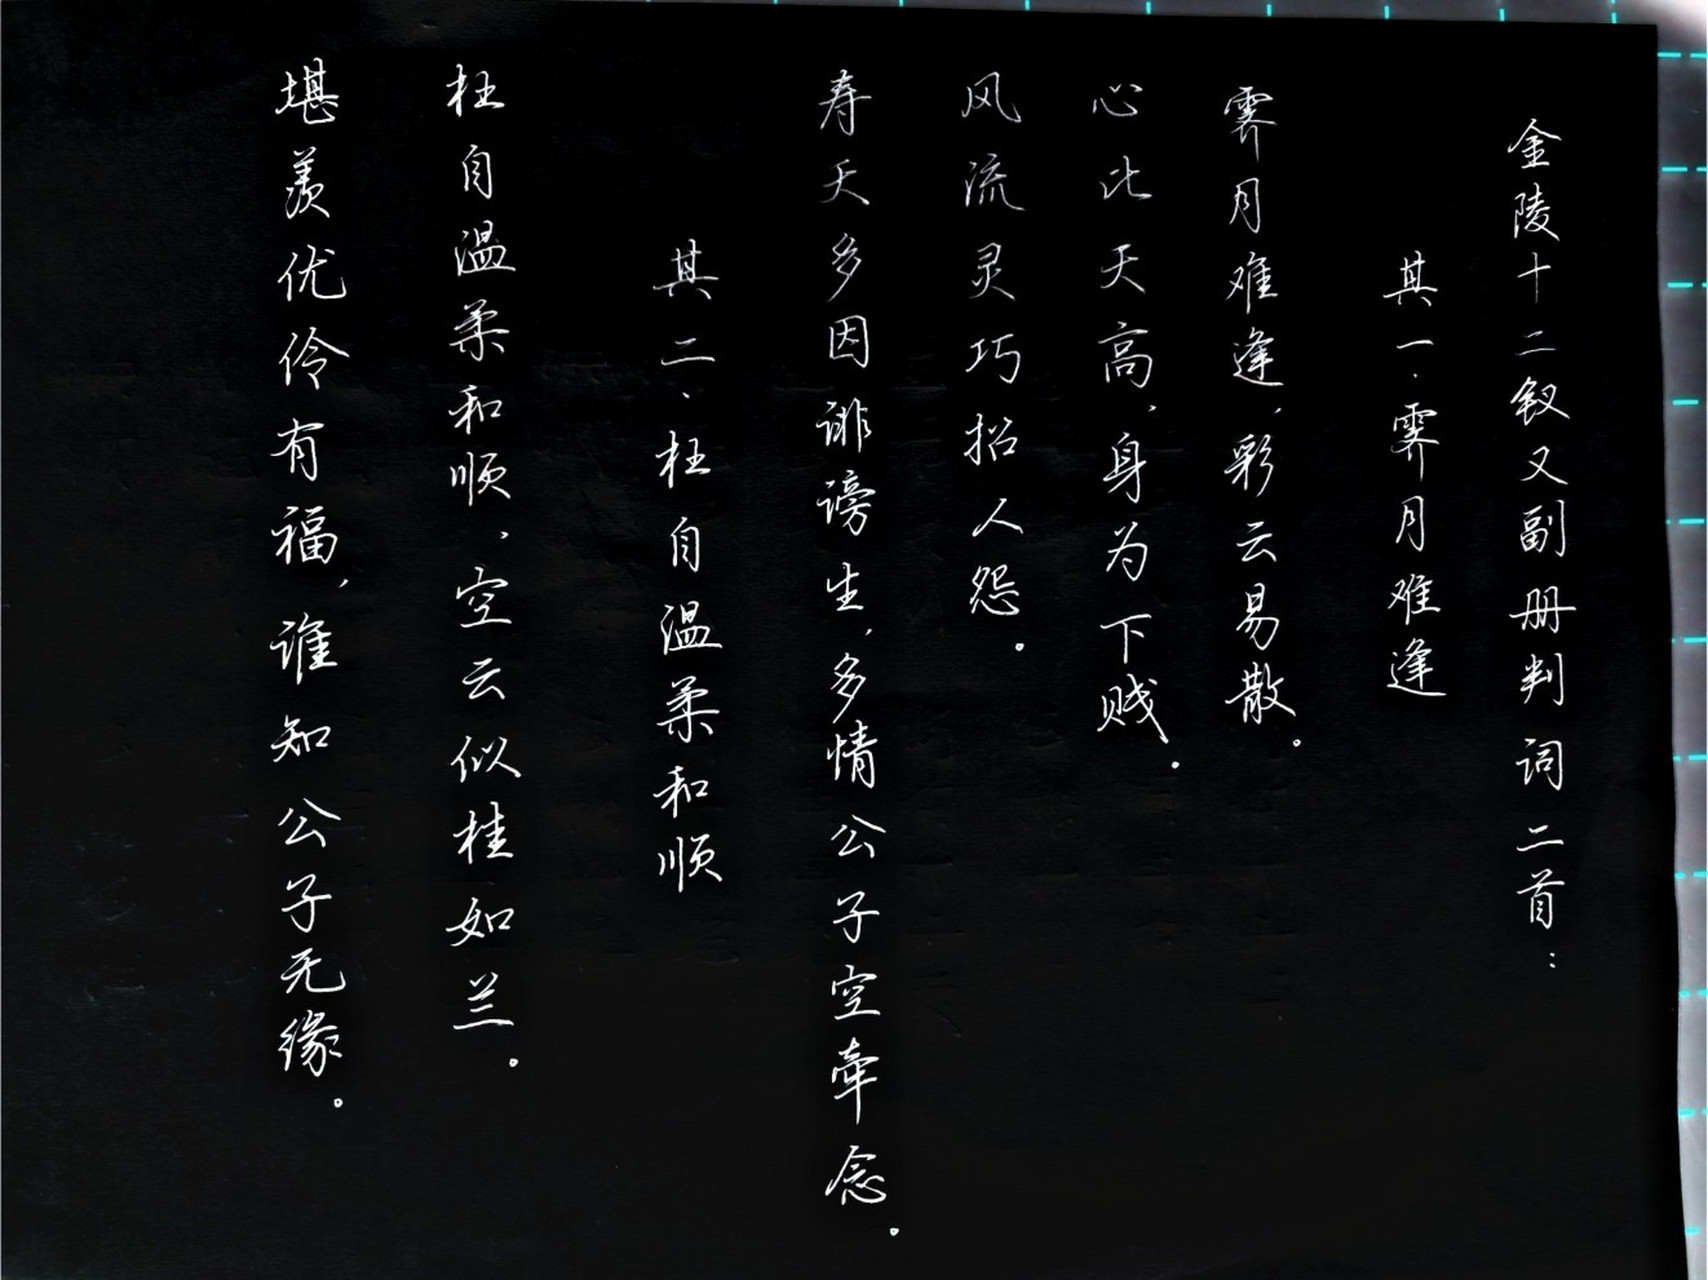 金陵十二钗又副册判词二首：
其一·霁月难逢
霁月难逢，彩云易散。
心比天高，身为下贱。
风流灵巧招人怨。
寿夭多因诽谤生，多情公子空牵念。
其二·枉自温柔和顺
枉自温柔和顺，空云似桂如兰。
堪羡优伶有福，谁知公子无缘。